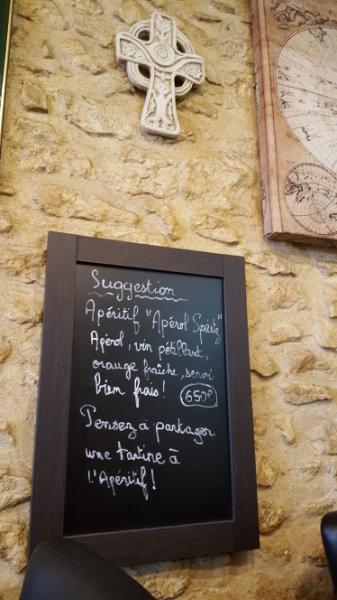 Suggestion
Apéritif "Apérol Spritz"
Apérol, vin pétillant,
orange fraîche, servi
bien frais! 650€
Pensez à partager
une tartine à
l'Apéritif!